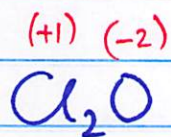 (+1) (-2)
Cl₂O